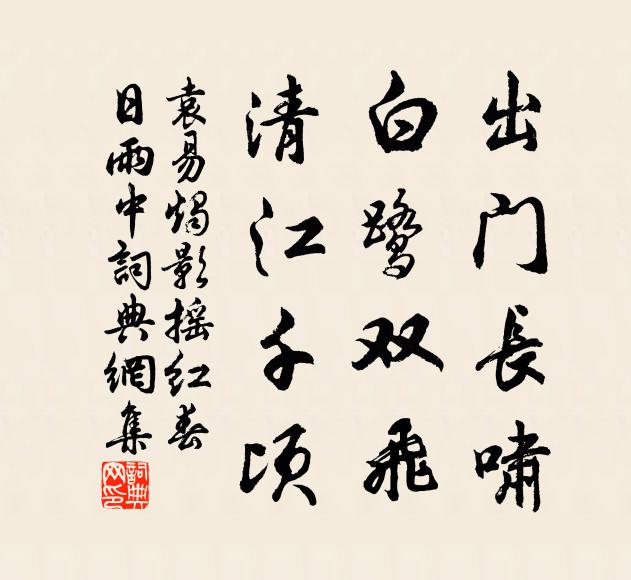 出门長嘯
白鹭双飛
清江千頃
袁易燭影摇红春
日雨中詞典網集
詞典网印